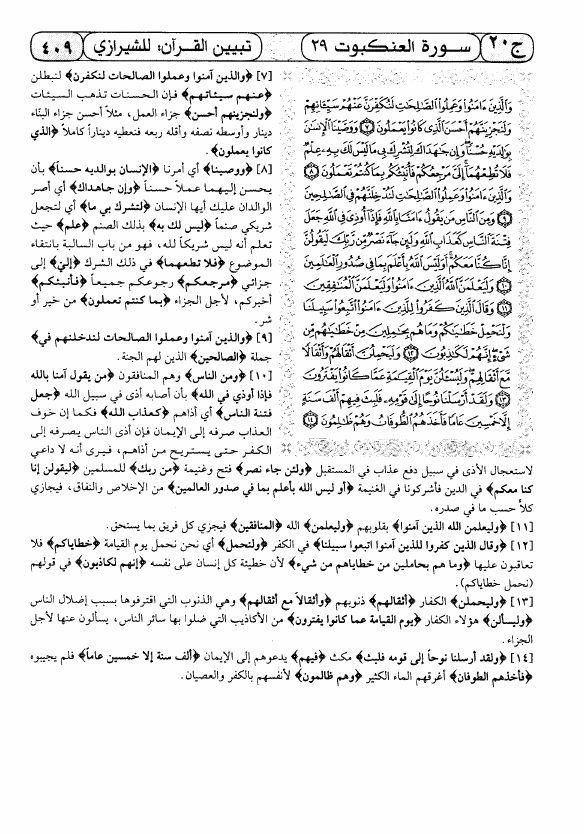 ج ٢٠
سورة العنكبوت ٢٩
تبيين القرآن: للشيرازي
٤٠٩
وَالَّذِينَ ءَامَنُوا وَعَمِلُوا الصَّالِحَاتِ لَنُكَفِّرَنَّ عَنْهُمْ سَيِّئَاتِهِمْ
وَلَنَجْزِيَنَّهُمْ أَحْسَنَ الَّذِي كَانُوا يَعْمَلُونَ ٧ وَوَصَّيْنَا الْإِنسَانَ
بِوَالِدَيْهِ حُسْنًا وَإِن جَاهَدَاكَ لِتُشْرِكَ بِي مَا لَيْسَ لَكَ بِهِ عِلْمٌ
فَلَا تُطِعْهُمَا إِلَيَّ مَرْجِعُكُمْ فَأُنَبِّئُكُم بِمَا كُنتُمْ تَعْمَلُونَ ٨
وَالَّذِينَ ءَامَنُوا وَعَمِلُوا الصَّالِحَاتِ لَنُدْخِلَنَّهُمْ فِي الصَّالِحِينَ
٩ وَمِنَ النَّاسِ مَن يَقُولُ ءَامَنَّا بِاللَّهِ فَإِذَا أُوذِيَ فِي اللَّهِ جَعَلَ
فِتْنَةَ النَّاسِ كَعَذَابِ اللَّهِ وَلَئِن جَاءَ نَصْرٌ مِّن رَّبِّكَ لَيَقُولُنَّ
إِنَّا كُنَّا مَعَكُمْ أَوَلَيْسَ اللَّهُ بِأَعْلَمَ بِمَا فِي صُدُورِ الْعَالَمِينَ
١٠ وَلَيَعْلَمَنَّ اللَّهُ الَّذِينَ ءَامَنُوا وَلَيَعْلَمَنَّ الْمُنَافِقِينَ
١١ وَقَالَ الَّذِينَ كَفَرُوا لِلَّذِينَ ءَامَنُوا اتَّبِعُوا سَبِيلَنَا
وَلْنَحْمِلْ خَطَايَاكُمْ وَمَا هُم بِحَامِلِينَ مِنْ خَطَايَاهُم مِّن
شَيْءٍ إِنَّهُمْ لَكَاذِبُونَ ١٢ وَلَيَحْمِلُنَّ أَثْقَالَهُمْ وَأَثْقَالًا
مَّعَ أَثْقَالِهِمْ وَلَيُسْأَلُنَّ يَوْمَ الْقِيَامَةِ عَمَّا كَانُوا يَفْتَرُونَ
١٣ وَلَقَدْ أَرْسَلْنَا نُوحًا إِلَى قَوْمِهِ فَلَبِثَ فِيهِمْ أَلْفَ سَنَةٍ
إِلَّا خَمْسِينَ عَامًا فَأَخَذَهُمُ الطُّوفَانُ وَهُمْ ظَالِمُونَ ١٤
[٧] ﴿والذين آمنوا وعملوا الصالحات لنكفرن﴾ لنبطلن
﴿عنهم سيئاتهم﴾ فإن الحسنات تذهب السيئات
﴿ولنجزينهم أحسن﴾ جزاء العمل، مثلاً أحسن جزاء البنّاء
دينار وأوسطه نصفه وأقله ربعه فنعطيه ديناراً كاملاً ﴿الذي
كانوا يعملون﴾.
[٨] ﴿ووصينا﴾ أي أمرنا ﴿الإنسان بوالديه حسناً﴾ بأن
يحسن إليهما عملاً حسناً ﴿وإن جاهداك﴾ أي أصر
الوالدان عليك أيها الإنسان ﴿لتشرك بي ما﴾ أي لتجعل
شريكي صنماً ﴿ليس لك به﴾ بذلك الصنم ﴿علم﴾ حيث
تعلم أنه ليس شريكاً لله، فهو من باب السالبة بانتفاء
الموضوع ﴿فلا تطعهما﴾ في ذلك الشرك ﴿إليّ﴾ إلى
جزائي ﴿مرجعكم﴾ رجوعكم جميعاً ﴿فأنبئكم﴾
أخبركم، لأجل الجزاء ﴿بما كنتم تعملون﴾ من خير أو
شر.
[٩] ﴿والذين آمنوا وعملوا الصالحات لندخلنهم في﴾
جملة ﴿الصالحين﴾ الذين لهم الجنة.
[١٠] ﴿ومن الناس﴾ وهم المنافقون ﴿من يقول آمنا بالله
فإذا أوذي في الله﴾ بأن أصابه أذى في سبيل الله ﴿جعل
فتنة الناس﴾ أي أذاهم ﴿كعذاب الله﴾ فكما إن خوف
العذاب صرفه إلى الإيمان فإن أذى الناس يصرفه إلى
الكفر حتى يستريح من أذاهم، فيرى أنه لا داعي
لاستعجال الأذى في سبيل دفع عذاب في المستقبل ﴿ولئن جاء نصر﴾ فتح وغنيمة ﴿من ربك﴾ للمسلمين ﴿ليقولن إنا
كنا معكم﴾ في الدين فأشركونا في الغنيمة ﴿أو ليس الله بأعلم بما في صدور العالمين﴾ من الإخلاص والنفاق، فيجازي
كلاً حسب ما في صدره.
[١١] ﴿وليعلمن الله الذين آمنوا﴾ بقلوبهم ﴿وليعلمن﴾ الله ﴿المنافقين﴾ فيجزي كل فريق بما يستحق.
[١٢] ﴿وقال الذين كفروا للذين آمنوا اتبعوا سبيلنا﴾ في الكفر ﴿ولنحمل﴾ أي نحن نحمل يوم القيامة ﴿خطاياكم﴾ فلا
تعاقبون عليها ﴿وما هم بحاملين من خطاياهم من شيء﴾ لأن خطيئة كل إنسان على نفسه ﴿إنهم لكاذبون﴾ في قولهم
(نحمل خطاياكم).
[١٣] ﴿وليحملن﴾ الكفار ﴿أثقالهم﴾ ذنوبهم ﴿وأثقالاً مع أثقالهم﴾ وهي الذنوب التي اقترفوها بسبب إضلال الناس
﴿وليسألن﴾ هؤلاء الكفار ﴿يوم القيامة عما كانوا يفترون﴾ من الأكاذيب التي ضلوا بها سائر الناس، يسألون عنها لأجل
الجزاء.
[١٤] ﴿ولقد أرسلنا نوحاً إلى قومه فلبث﴾ مكث ﴿فيهم﴾ يدعوهم إلى الإيمان ﴿ألف سنة إلا خمسين عاماً﴾ فلم يجيبوه
﴿فأخذهم الطوفان﴾ أغرقهم الماء الكثير ﴿وهم ظالمون﴾ لأنفسهم بالكفر والعصيان.